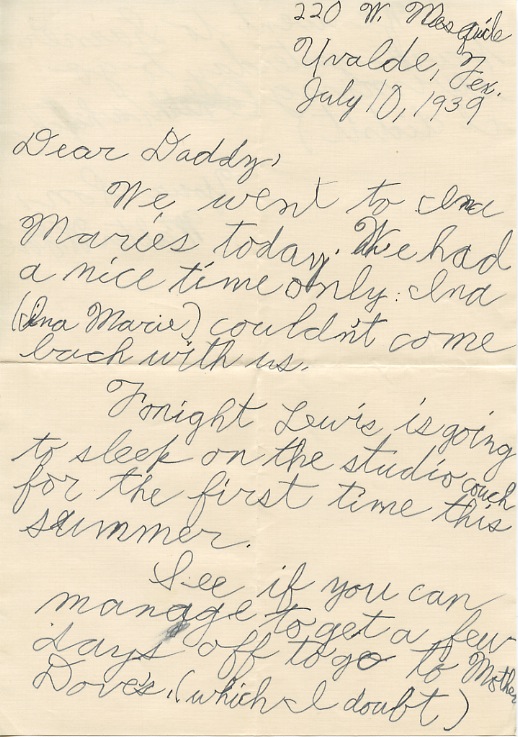 220 W. Mesquite
Uvalde, Tex.
July 10, 1939
Dear Daddy,
We went to Ina
Marie's today. We had
a nice time only: Ina
(Ina Marie) couldn't come
back with us.
Tonight Lewis is going
to sleep on the studio couch
for the first time this
summer.
See if you can
manage to get a few
days off to go to Mother
Dove's. (which I doubt)